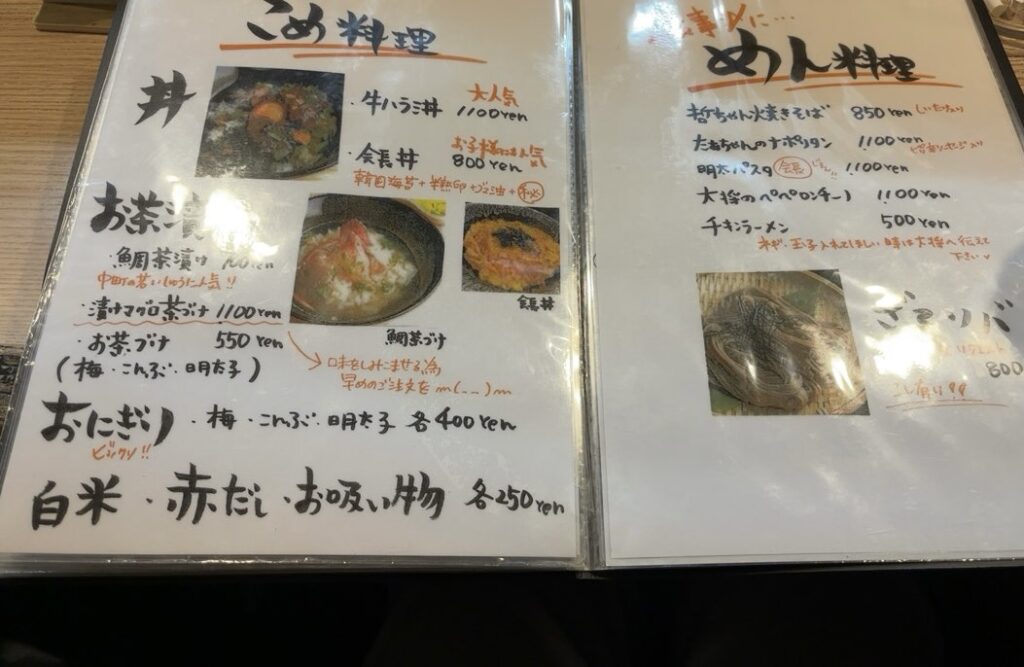 こめ料理
丼
・牛ハラミ丼 1100yen
大人気
・会長丼 800yen
お子様にも人気
韓国海苔+ +ゴマ油+秘
お茶漬
・鯛茶漬け
・漬けマグロ茶づけ 1100yen
・お茶づけ 550yen
(梅・こんぶ・明太子)
鯛茶づけ
会長丼
味をしみこませる為
早めのご注文を m(_ _)m
おにぎり ・梅・こんぶ・明太子 各400yen
ビックリ!!
白米・赤だし・お吸い物 各250yen
〆に…
めん料理
哲ちゃん焼きそば 850yen
ちゃんのナポリタン 1100yen
明太パスタ 会長 1100yen
大将のペペロンチーノ 1100yen
チキンラーメン 500yen
ネギ、玉子入れてほしい時は大将へ伝えて
下さい
800